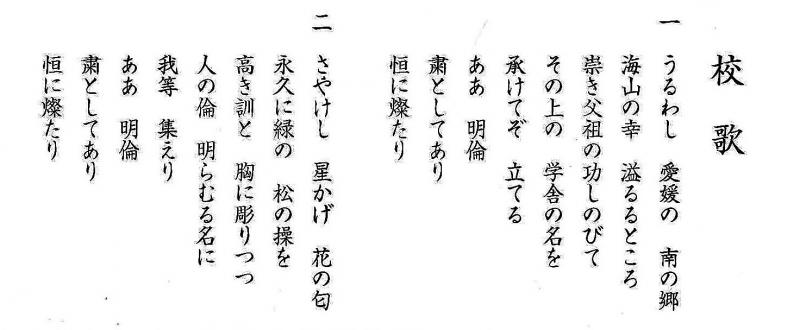 校歌
一 うるわし 愛媛の 南の郷
海山の幸 溢るるところ
崇き父祖の功しのびて
その上の 学舎の名を
承けてぞ 立てる
ああ 明倫
粛としてあり
恒に燦たり
二 さやけし 星かげ 花の匂
永久に緑の 松の操を
高き訓と 胸に彫りつつ
人の倫 明らむる名に
我等 集えり
ああ 明倫
粛としてあり
恒に燦たり